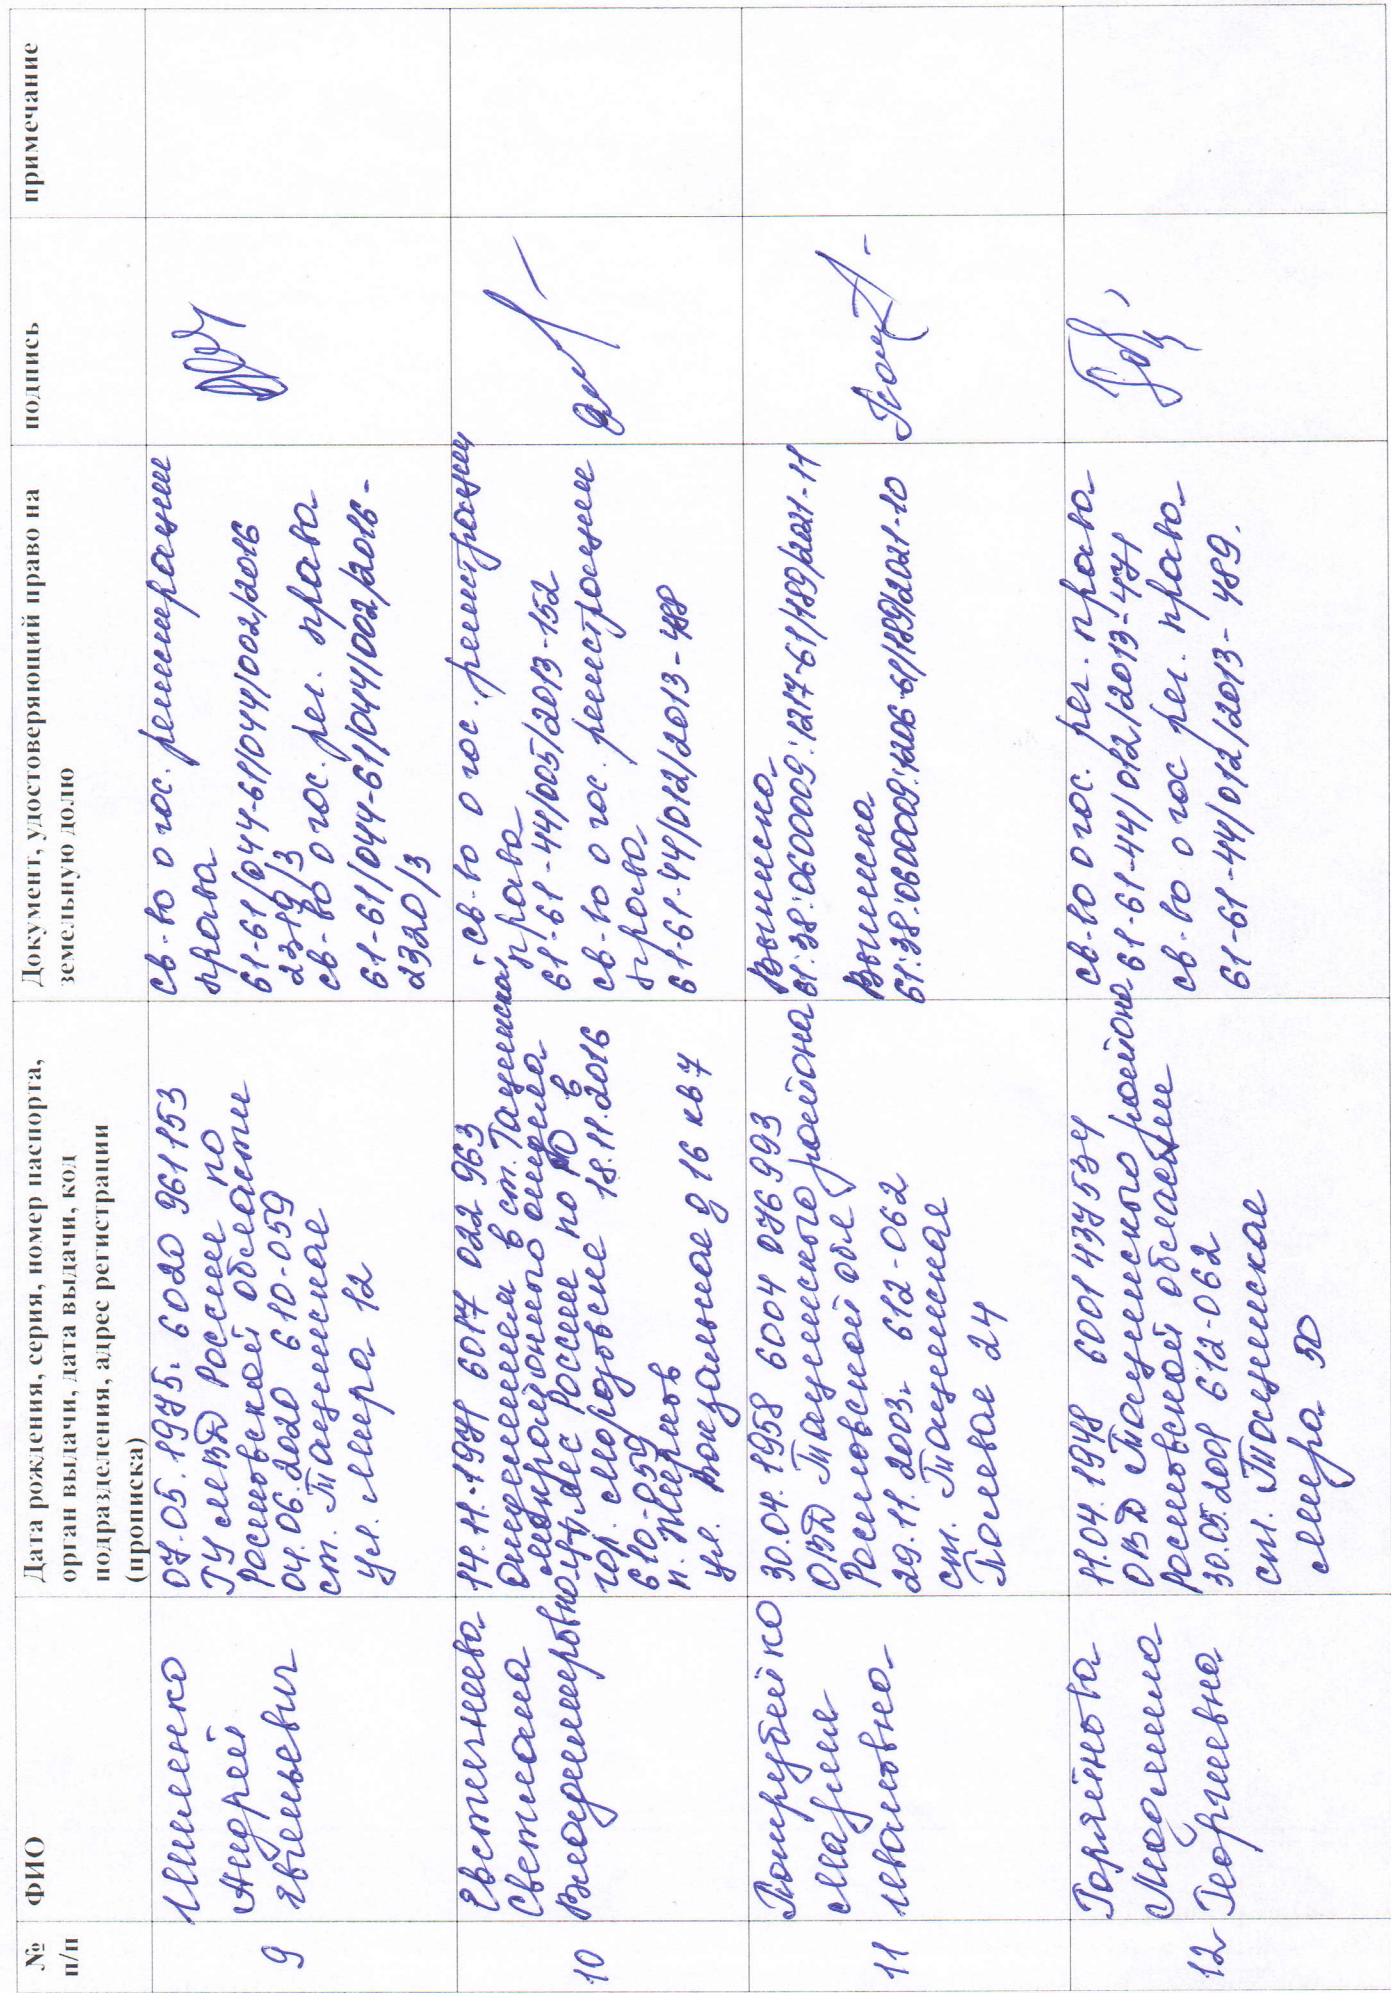 №
п/п
ФИО
Дата рождения, серия, номер паспорта,
орган выдачи, дата выдачи, код
подразделения, адрес регистрации
(прописка)
Документ, удостоверяющий право на
земельную долю
подпись
примечание
9
Андрей
Евгеньевич
07.05.1975. 6020 961153
ГУ МВД России по
Ростовской области
04.06.2020 610-059
ст. Тацинская
ул. Мира 12
св-во о гос. регистрации
права
61-61/044-61/044/002/2016
2319/3
св-во о гос. рег. права
61-61/044-61/044/002/2016-
2320/3
10
Евстигнеева
Светлана
Владимировна
14.11.1971 6017 022 963
Отделением в ст. Тацинской
межрайонного отдела
УФМС России по РО в
гор. Морозовске 18.11.2016
610-059
п. Жирнов
ул. Вокзальная д 16 кв 7
св-во о гос. регистрации
права
61-61-44/005/2013-152
св-во о гос. регистрации
права
61-61-44/012/2013-488
11
Поцелуйко
Мария
Ивановна
30.04.1958 6004 076993
ОВД Тацинского района
Ростовской обл
29.11.2003. 612-062
ст. Тацинская
Полевая 24
Выписка
61:38:0600009:1217-61/189/2021-11
Выписка
61:38:0600009:1206-61/189/2021-10
12
Горяйнова
Людмила
Георгиевна
11.04.1948 6001 437534
ОВД Тацинского района
Ростовской области
30.05.2001 612-062
ст. Тацинская
Мира 50
св-во о гос. рег. права
61-61-44/012/2013-471
св-во о гос рег. права
61-61-44/012/2013-489.